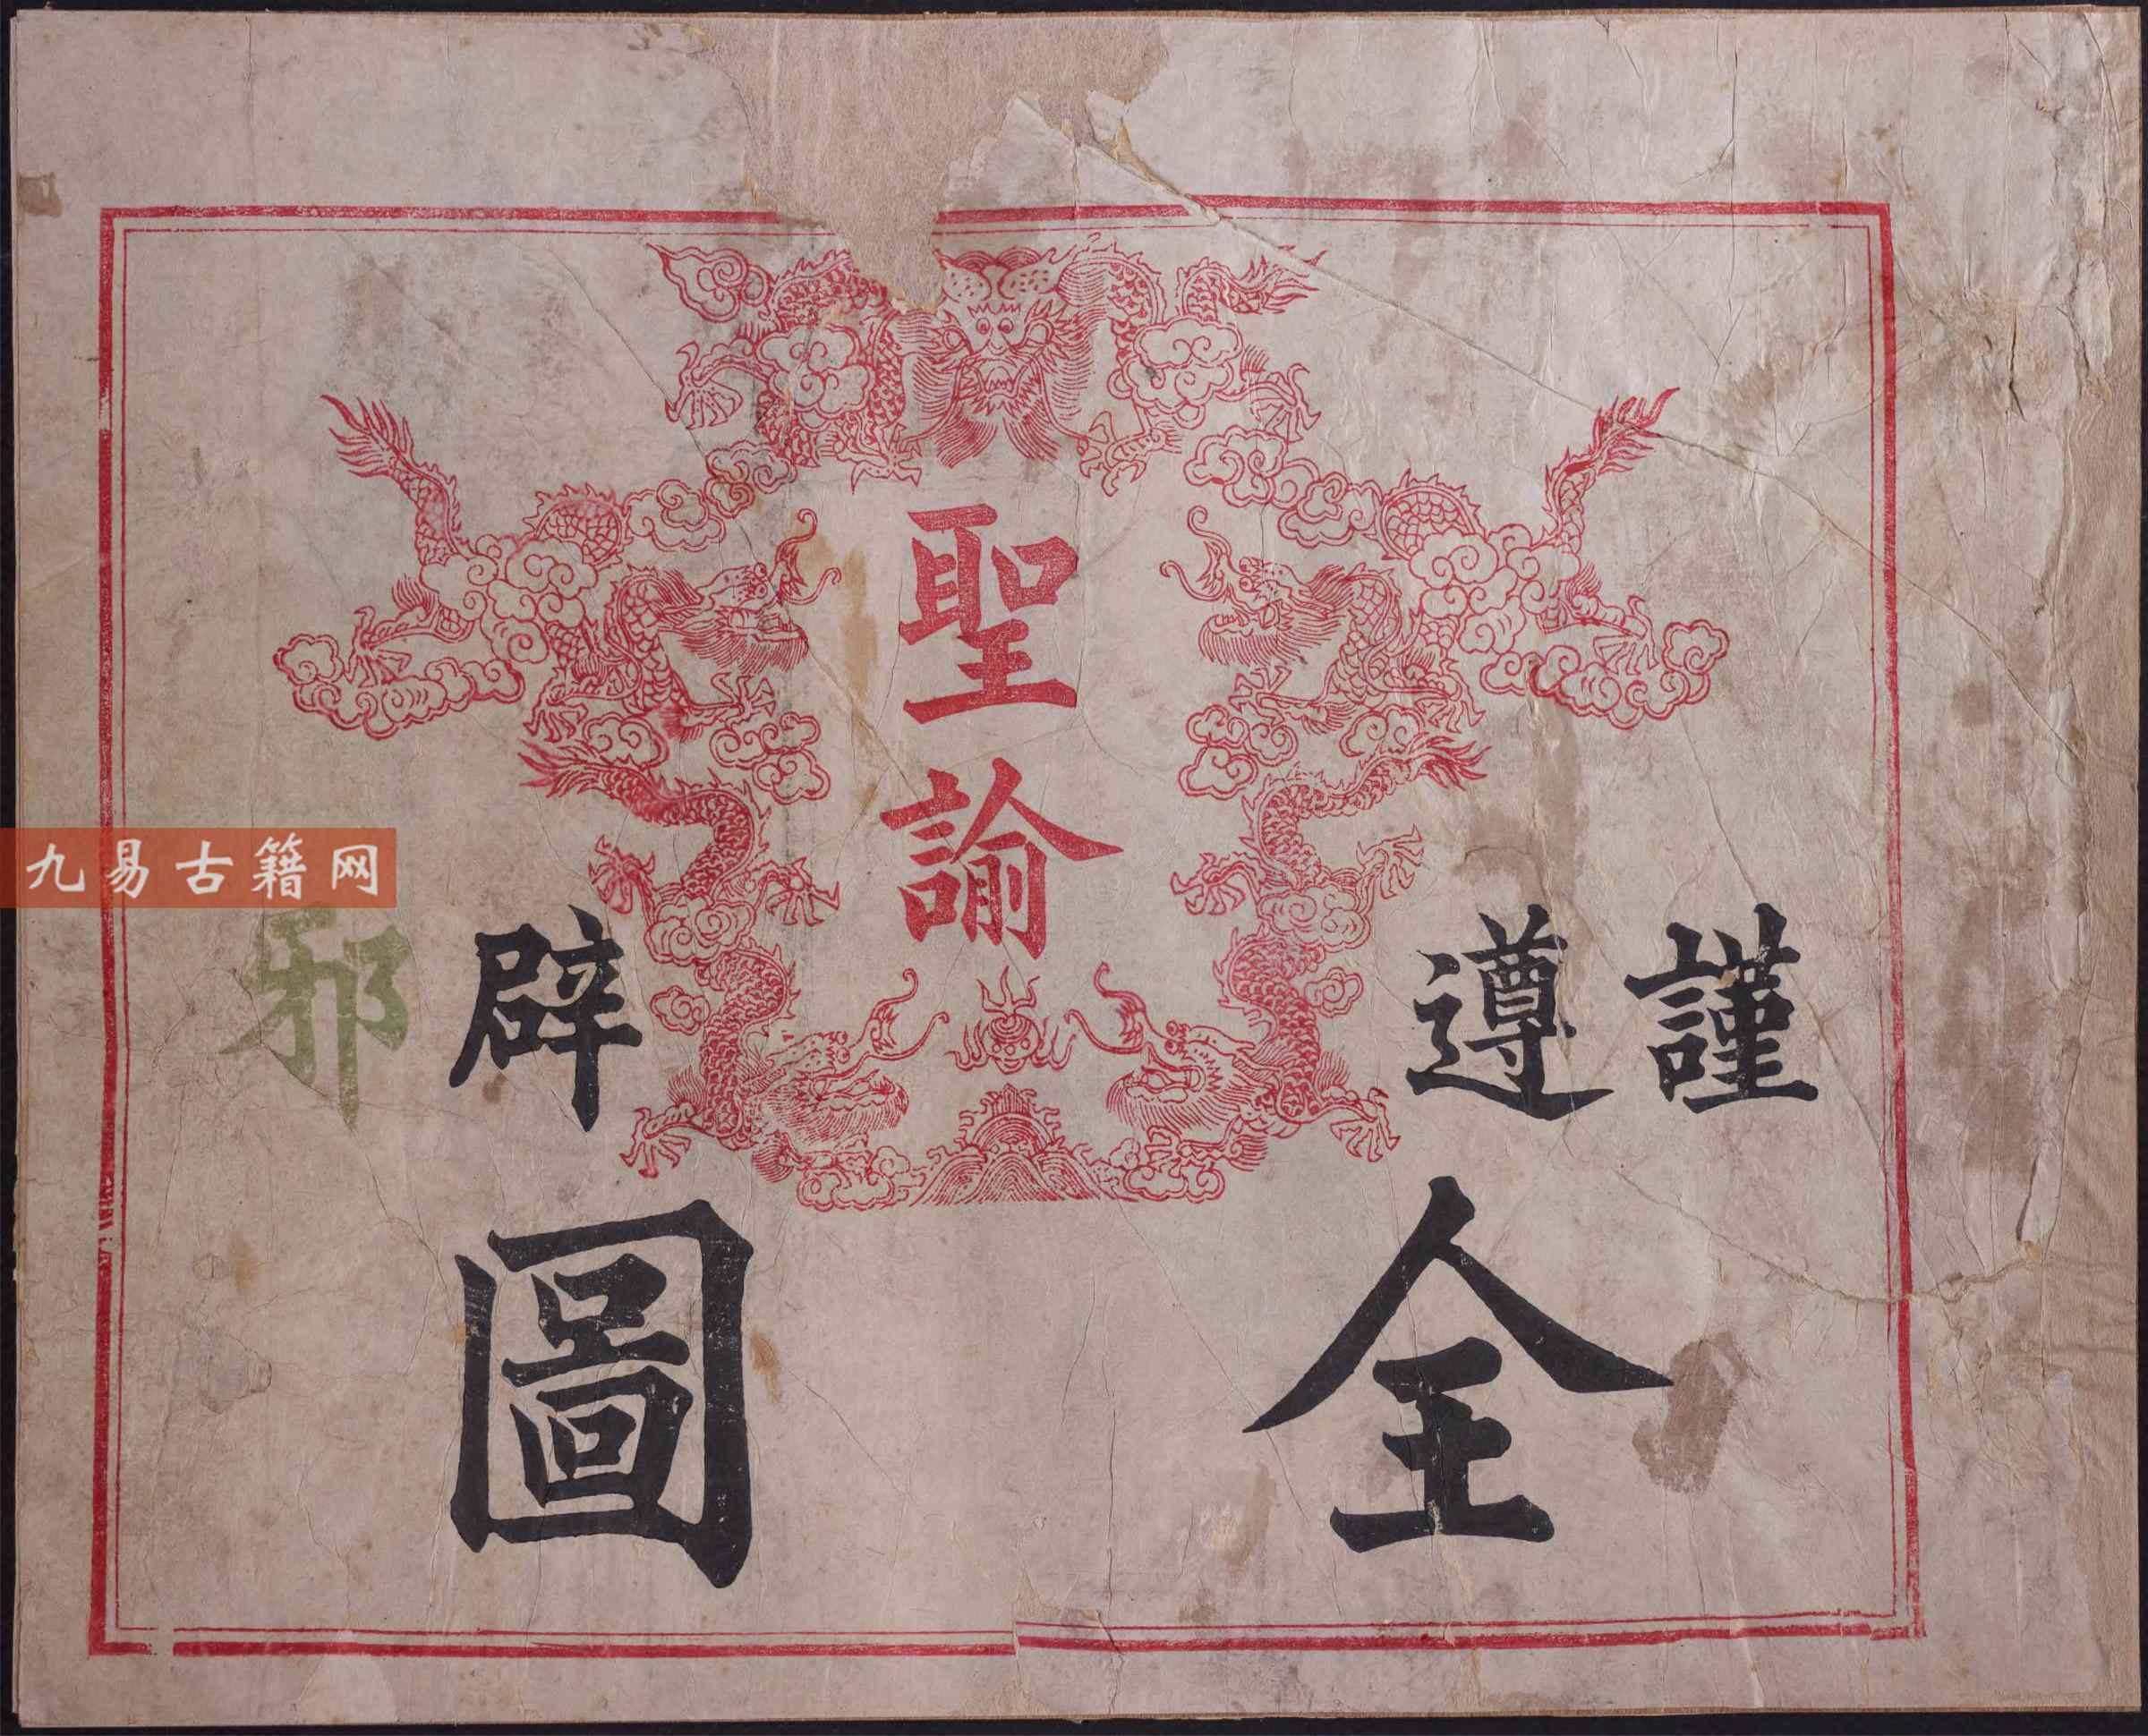 謹遵
聖諭
辟邪
全圖
九易古籍网